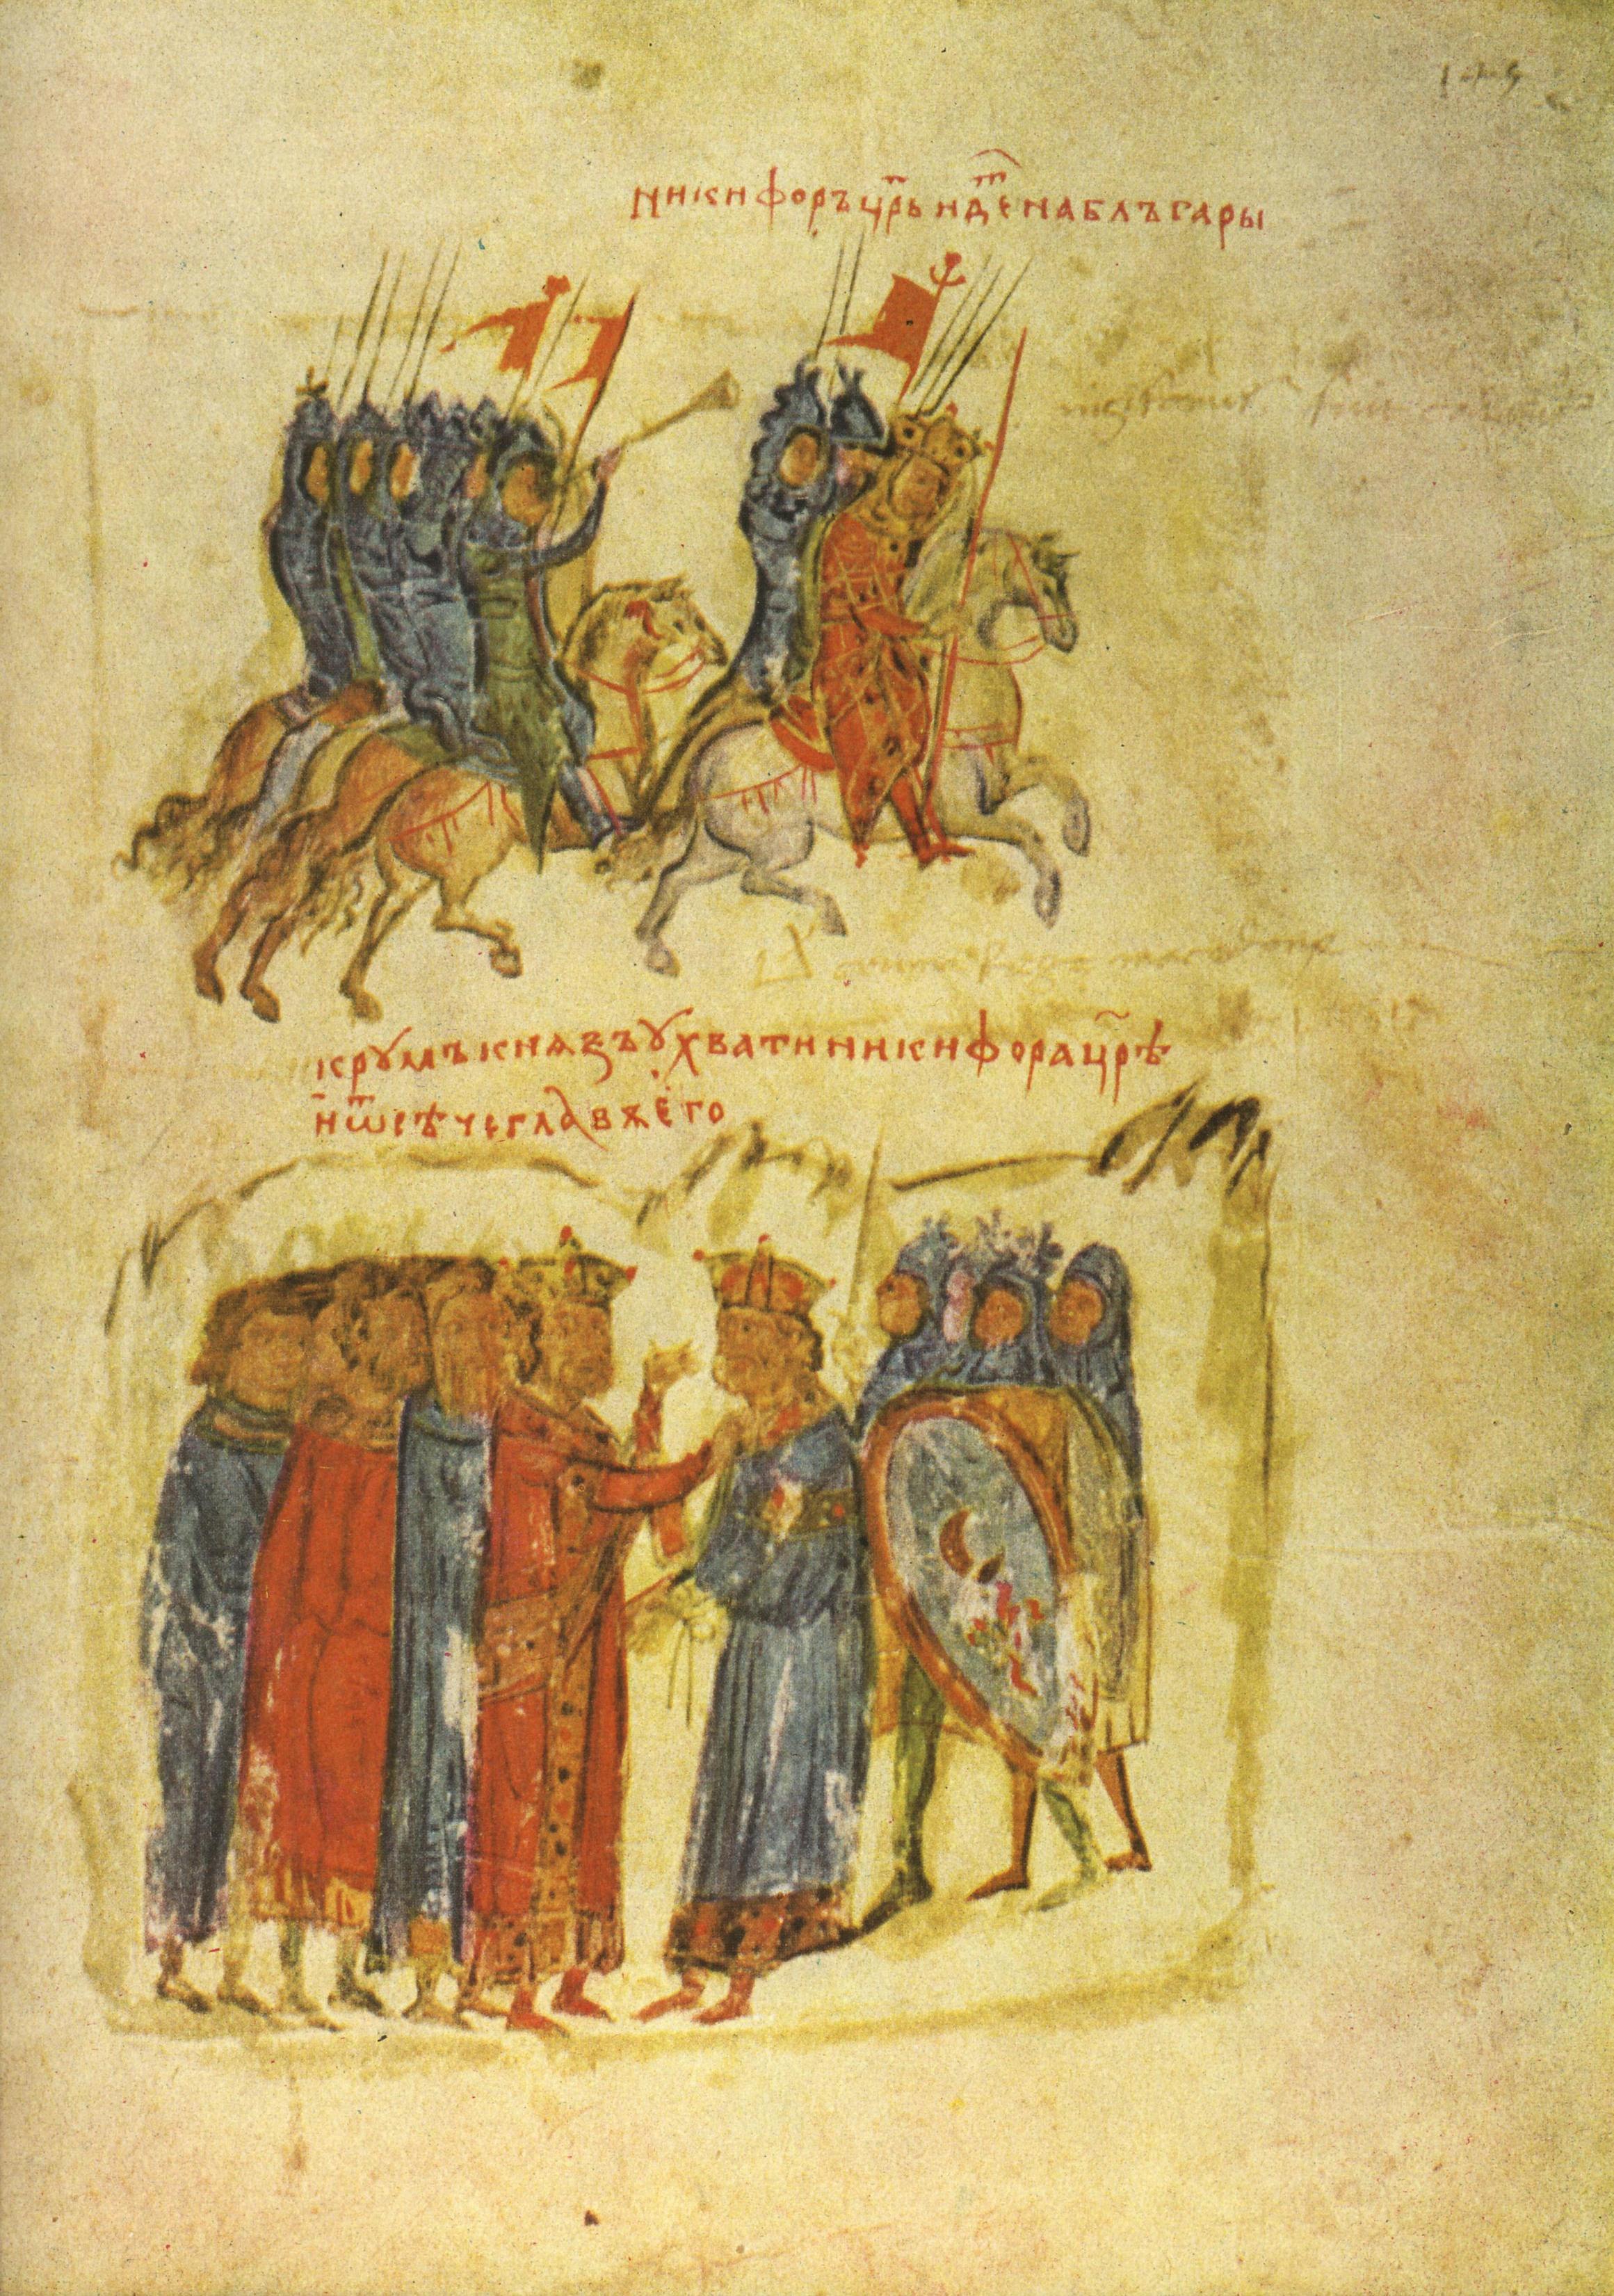 никифоръ цр҃ь идет на блъгары
крꙋмъ кнѧзъ ꙋхвати никифора цр҃ѣ
и ѿсѣче главѫ его